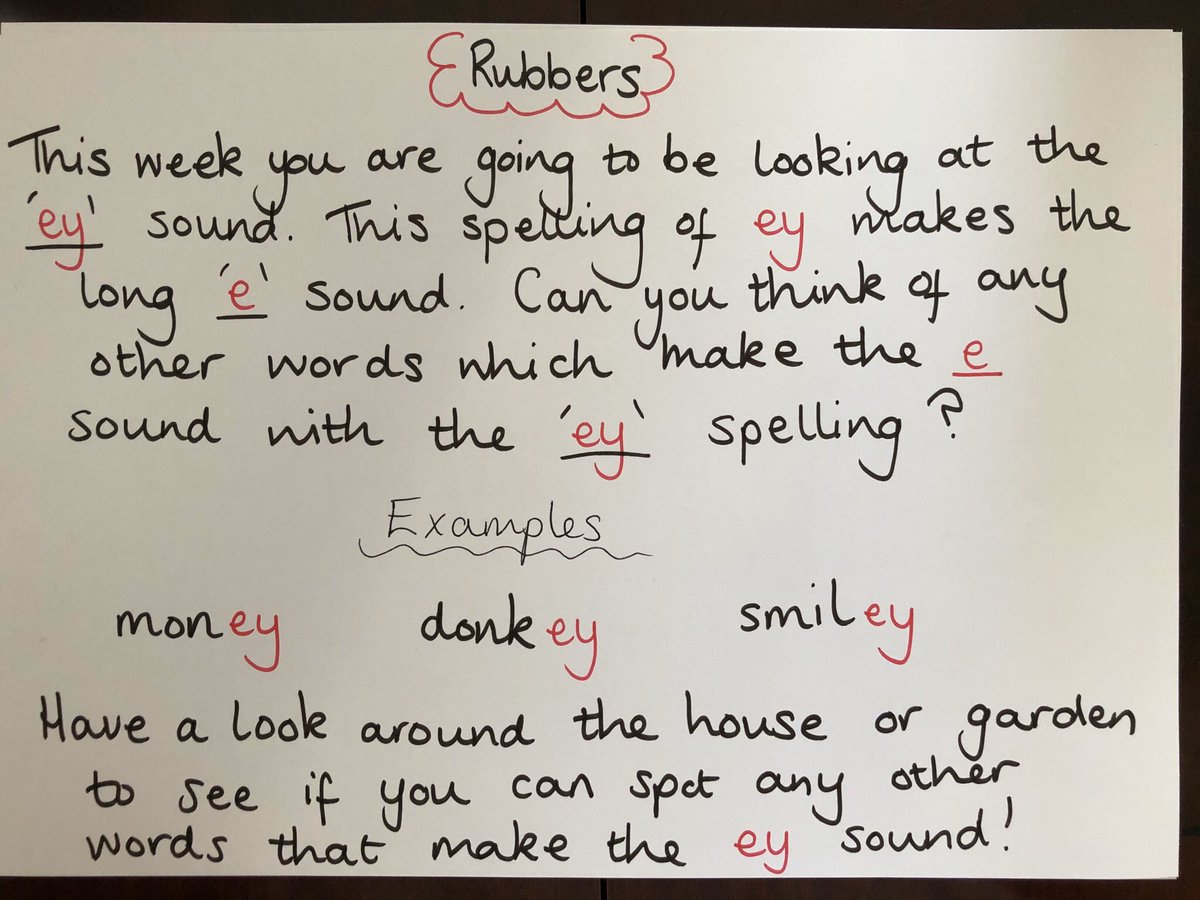 Rubbers
This week you are going to be looking at the
'ey' sound. This spelling of ey makes the
long 'e' sound. Can you think of any
other words which make the e
sound with the 'ey' spelling?
Examples
money donkey smiley
Have a look around the house or garden
to see if you can spot any other
words that make the ey sound!